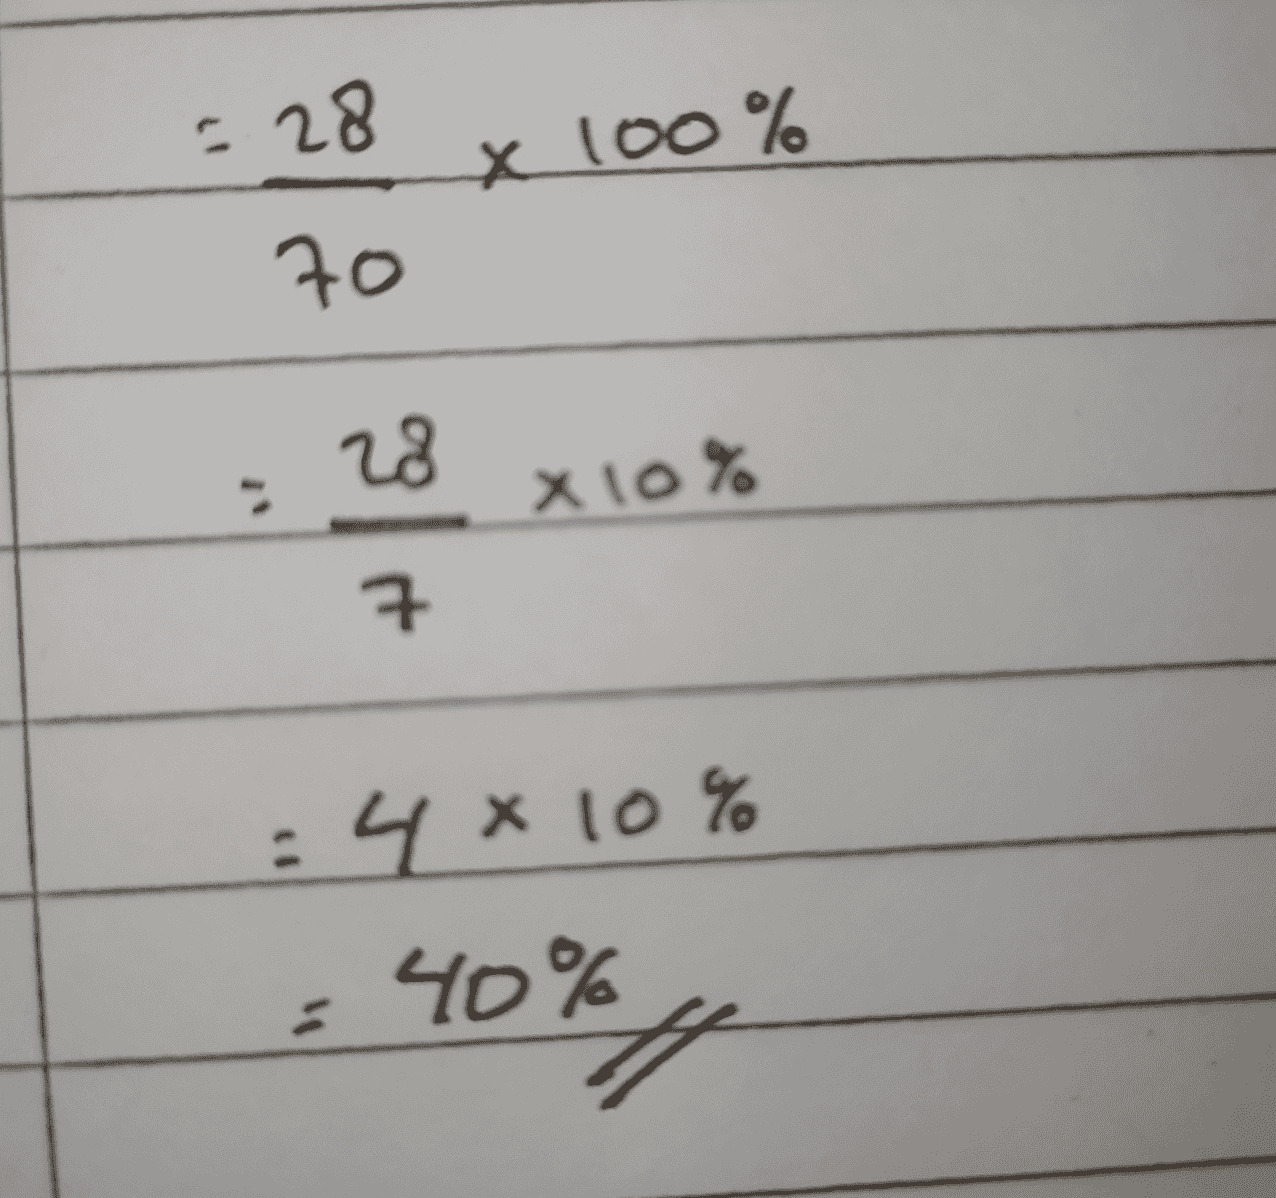 = 28/70 x 100%
= 28/7 x 10%
= 4 x 10%
= 40%